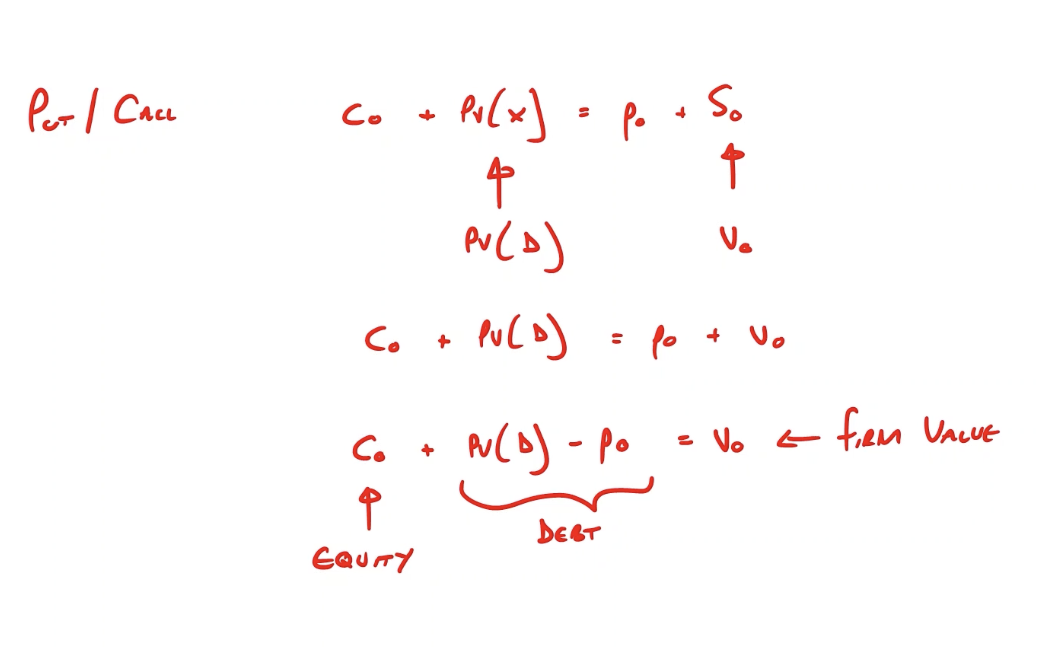 PUT / CALL C₀ + PV(X] = P₀ + S₀
↑ ↑
PV(D) V₀
C₀ + PV(D) = P₀ + V₀
C₀ + PV(D) - P₀ = V₀ ← FIRM VALUE
↑
DEBT
EQUITY